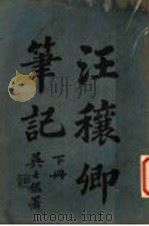 汪穰卿
筆記
下冊
吳士鑑署